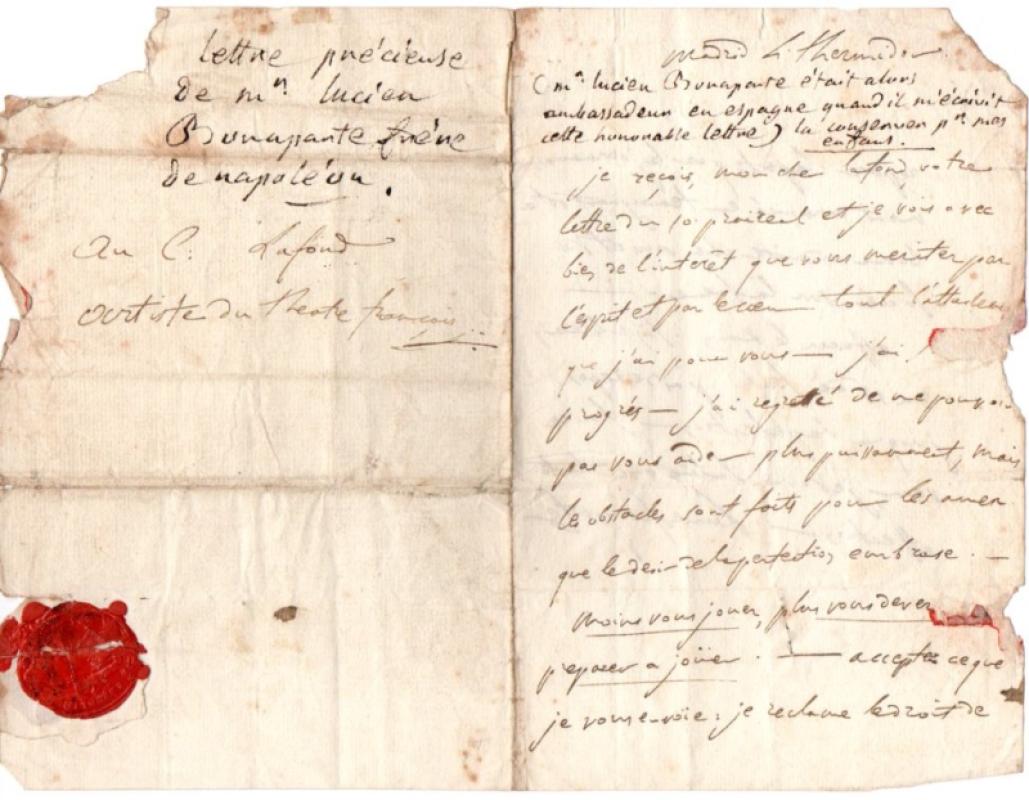 lettre précieuse
de mr. lucien
Bonaparte frère
de napoléon.
au C. Lafond
artiste du theatre françois
madrid thermidor
(mr. lucien Bonaparte était alors
ambassadeur en espagne quand il m'écrivit
cette honorable lettre) la conserver pr. mes
enfans.
je reçois, mon cher lafond, votre
lettre du 10 praireal et je vois avec
bien de l'interêt que vous meritez par
l'esprit et par le cœur tout l'attachem
que j'ai pour vous — j'ai
progrés — j'ai regreté de ne pouvoir
pas vous aider plus puissamment, mais
les obstacles sont faits pour les amer
que le desir de la perfection embrase. —
moins vous jouer, plus vous dever
p'eparer a joüer. — acceptez ce que
je vous envoie: je reclame le droit de